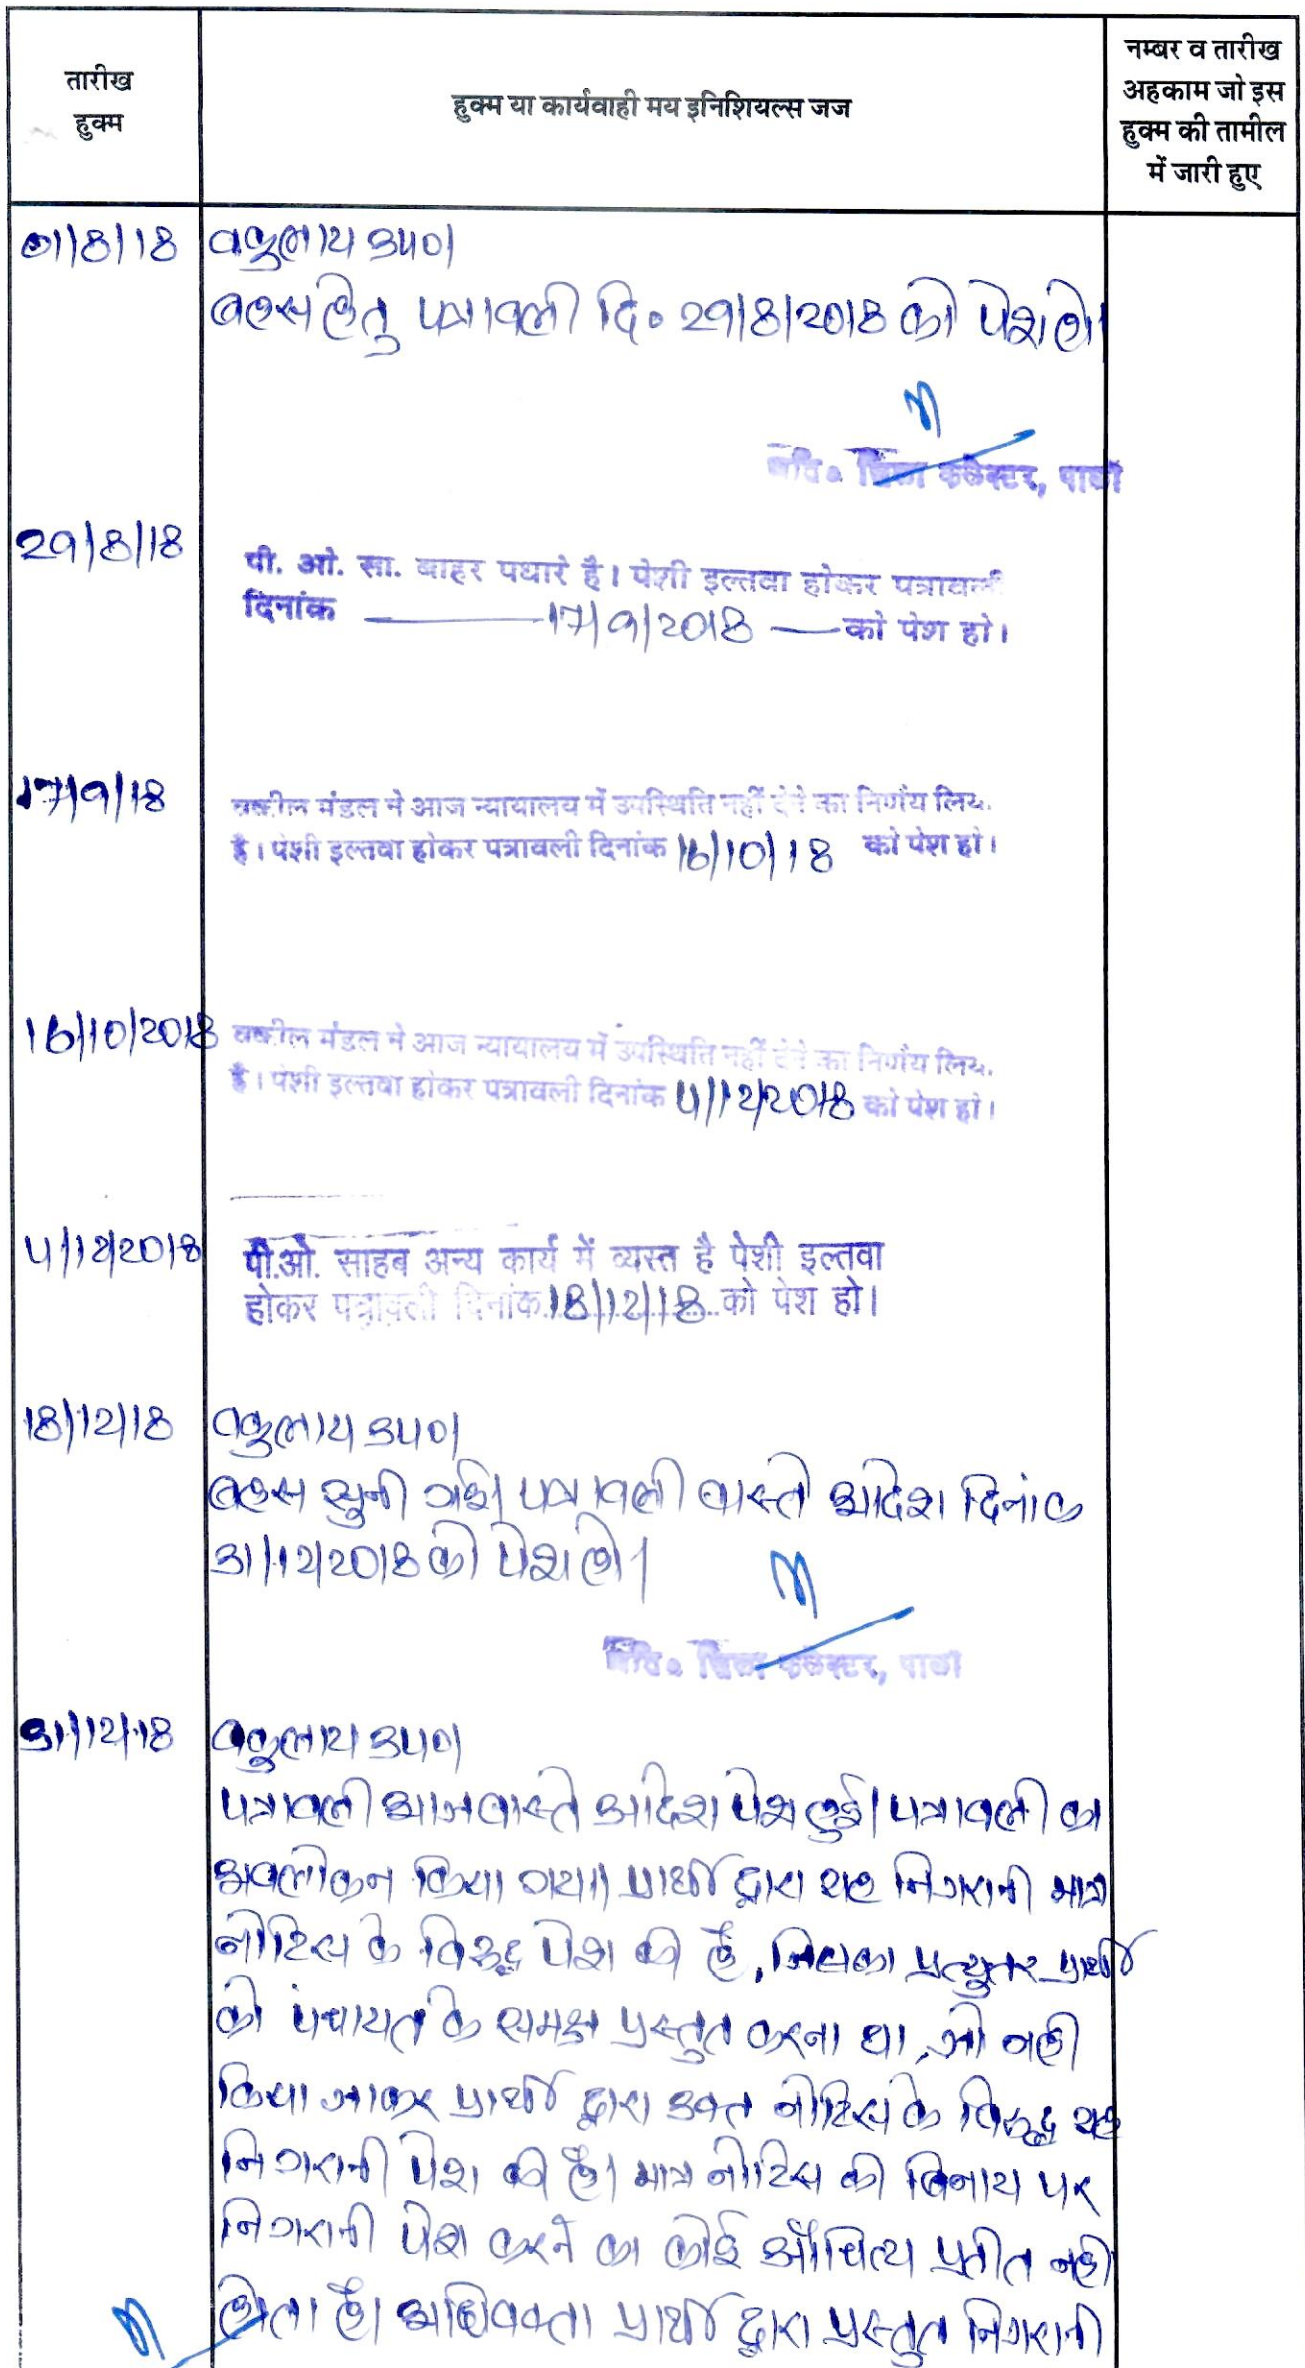 तारीख
हुक्म
हुक्म या कार्यवाही मय इनिशियल्स जज
नम्बर व तारीख
अहकाम जो इस
हुक्म की तामील
में जारी हुए
01/8/18 वकुलाय उप०।
बहस हेतु पत्रावली दि० 29/8/2018 को पेश हो।
अति० जिला कलेक्टर, पाली
29/8/18
पी. ओ. सा. बाहर पधारे है। पेशी इल्तवा होकर पत्रावली
दिनांक 17/9/2018 को पेश हो।
17/9/18 वकील मंडल ने आज न्यायालय में उपस्थिति नहीं देने का निर्णय लिय.
है। पेशी इल्तवा होकर पत्रावली दिनांक 16/10/18 को पेश हो।
16/10/2018 वकील मंडल ने आज न्यायालय में उपस्थिति नहीं देने का निर्णय लिय.
है। पेशी इल्तवा होकर पत्रावली दिनांक 4/12/2018 को पेश हो।
4/12/2018 पी.ओ. साहब अन्य कार्य में व्यस्त है पेशी इल्तवा
होकर पत्रावली दिनांक 18/12/18 को पेश हो।
18/12/18 वकुलाय उप०।
बहस सुनी गई। पत्रावली वास्ते आदेश दिनांक
31/12/2018 को पेश हो।
अति० जिला कलेक्टर, पाली
31/12/18 वकुलाय उप०।
पत्रावली आज वास्ते आदेश पेश हुई। पत्रावली का
अवलोकन किया गया। प्रार्थी द्वारा यह निगरानी मात्र
नोटिस के विरूद्ध पेश की है, जिसका प्रत्युतर प्रार्थी
को पंचायत के समक्ष प्रस्तुत करना था, जो नही
किया जाकर प्रार्थी द्वारा उक्त नोटिस के विरूद्ध यह
निगरानी पेश की है। मात्र नोटिस की बिनाय पर
निगरानी पेश करने का कोई औचित्य प्रतीत नही
होता है। अधिवक्ता प्रार्थी द्वारा प्रस्तुत निगरानी